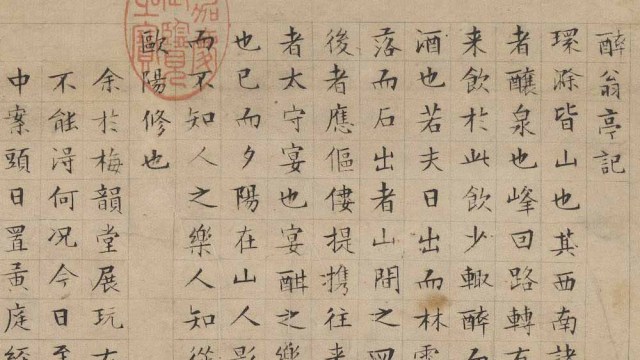 醉翁亭記
環滁皆山也其西南諸
者釀泉也峰回路轉有
来飲於此飲少輙醉而
酒也若夫日出而林霏
落而石出者山間之四
後者應傴僂提攜往来
者太守宴也宴酣之樂
也已而夕陽在山人影
而不知人之樂人知從
歐陽修也
余於梅韻堂展玩右
不能淂何况今日至
中案頭日置黄庭經